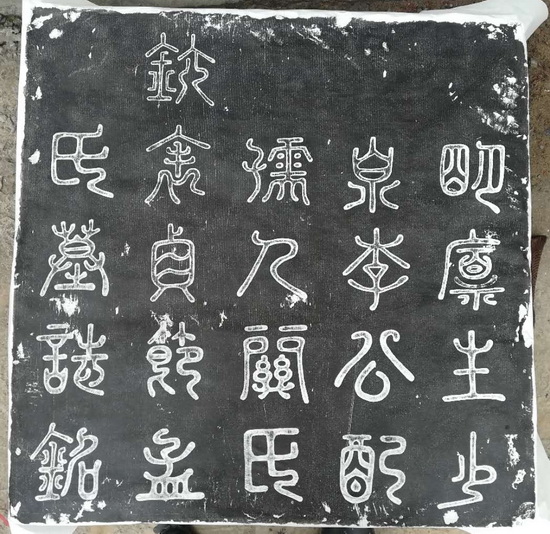 明廩生少
泉李公配
孺人關氏
欽表貞節孟
氏墓誌銘